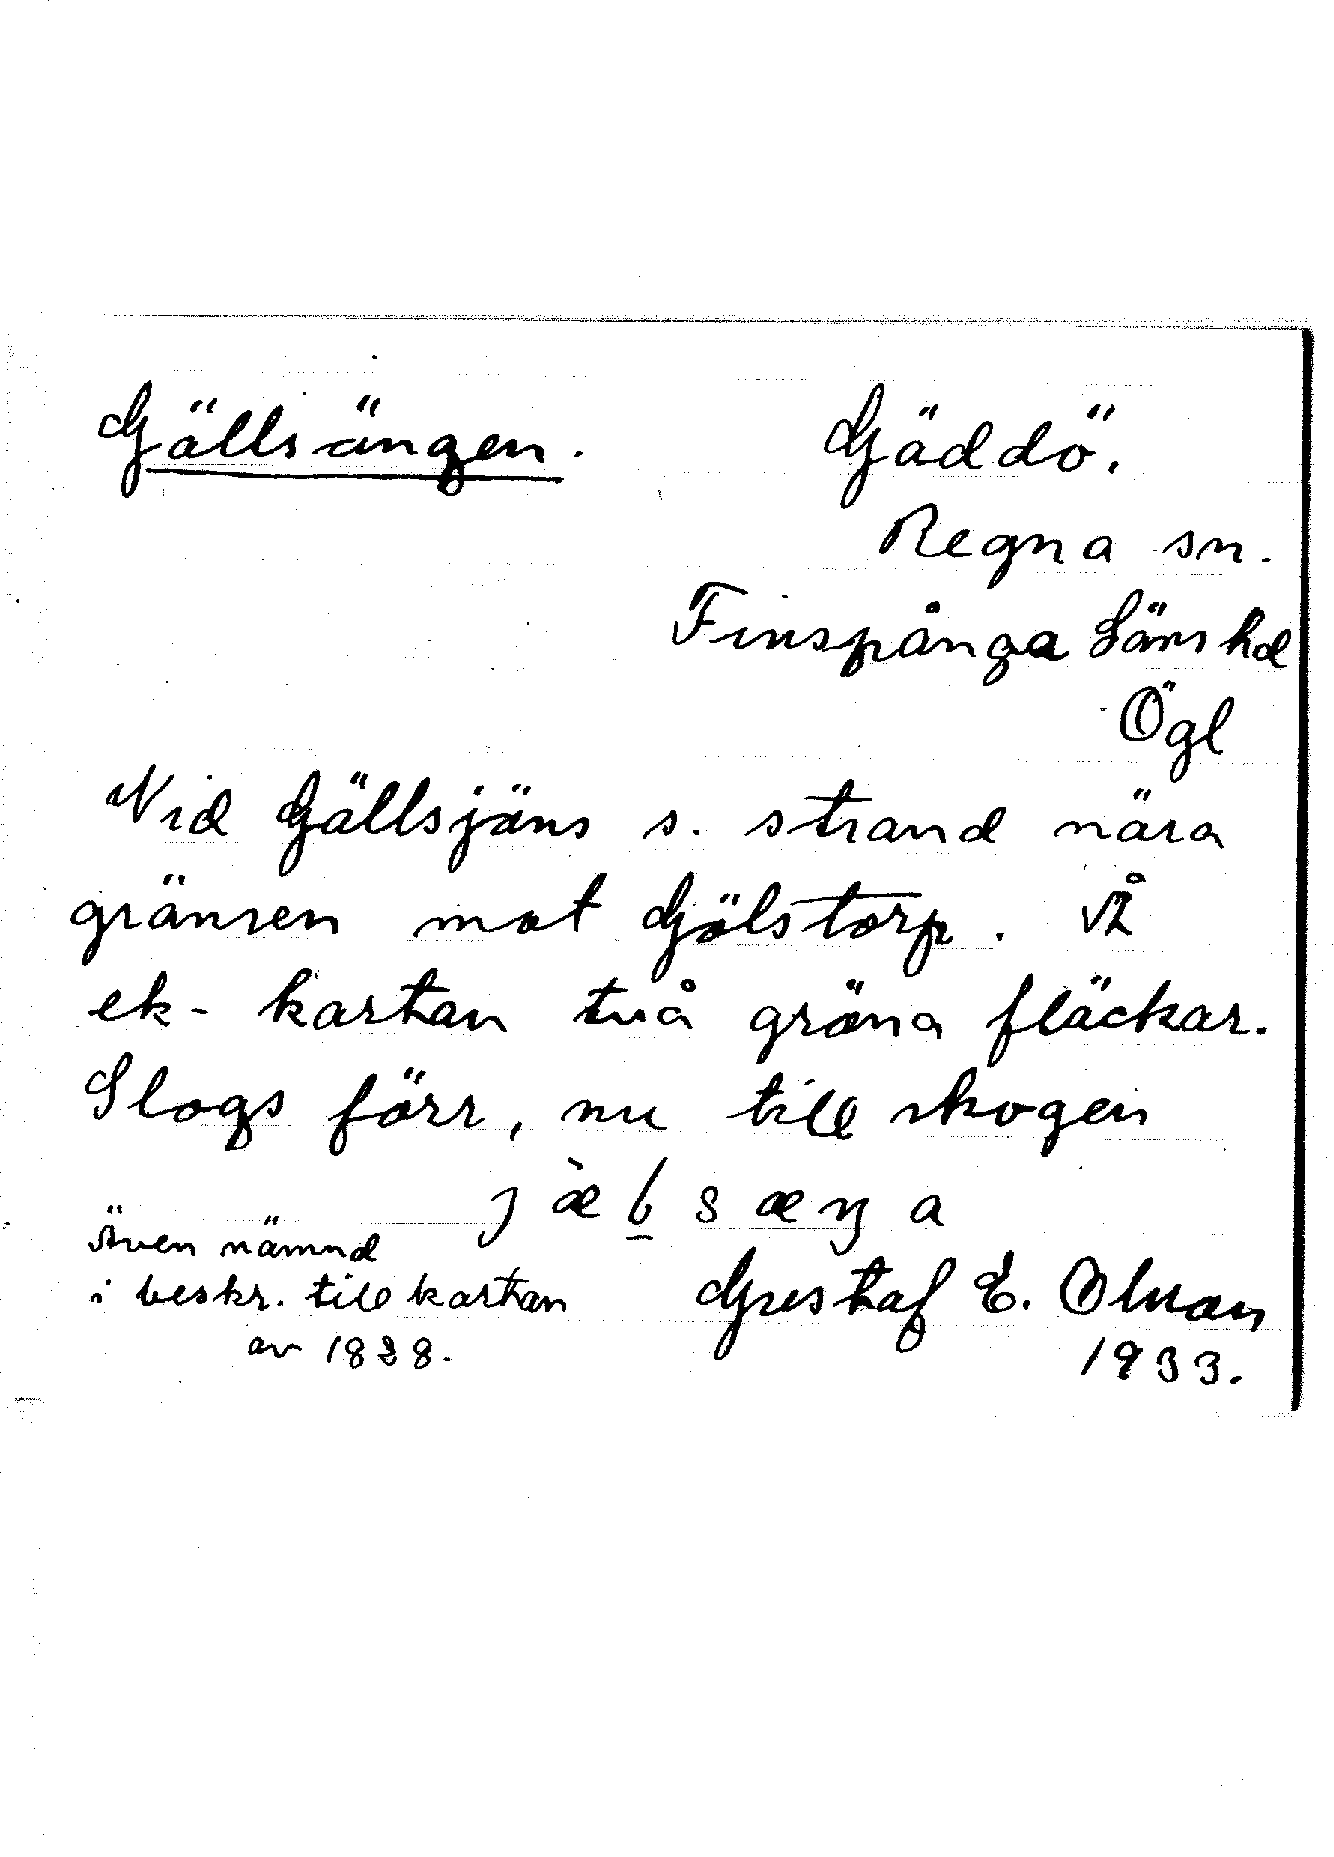 Gällsängen.
Gäddö.
Regna sn.
Finspånga Läns hd
Ögl
Vid Gällsjäns s. strand nära
gränsen mot Gölstorp. På
ek-kartan två gröna fläckar.
Slogs förr, nu till skogen
Även nämnd
i beskr. till kartan
av 1838.
Gustaf E. Olsson
1933.